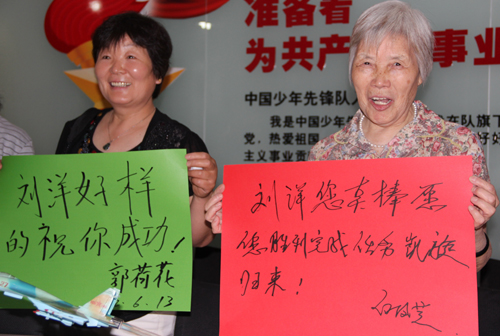 准备着
为共产 事业
中国少年先锋队
我是中国少年先 在队旗下
党，热爱祖国 好好
主义事业贡
刘洋好样
的祝你成功！
郭荷花
.6.13
刘洋您真棒愿
您胜利完成任务凯旋
归来！